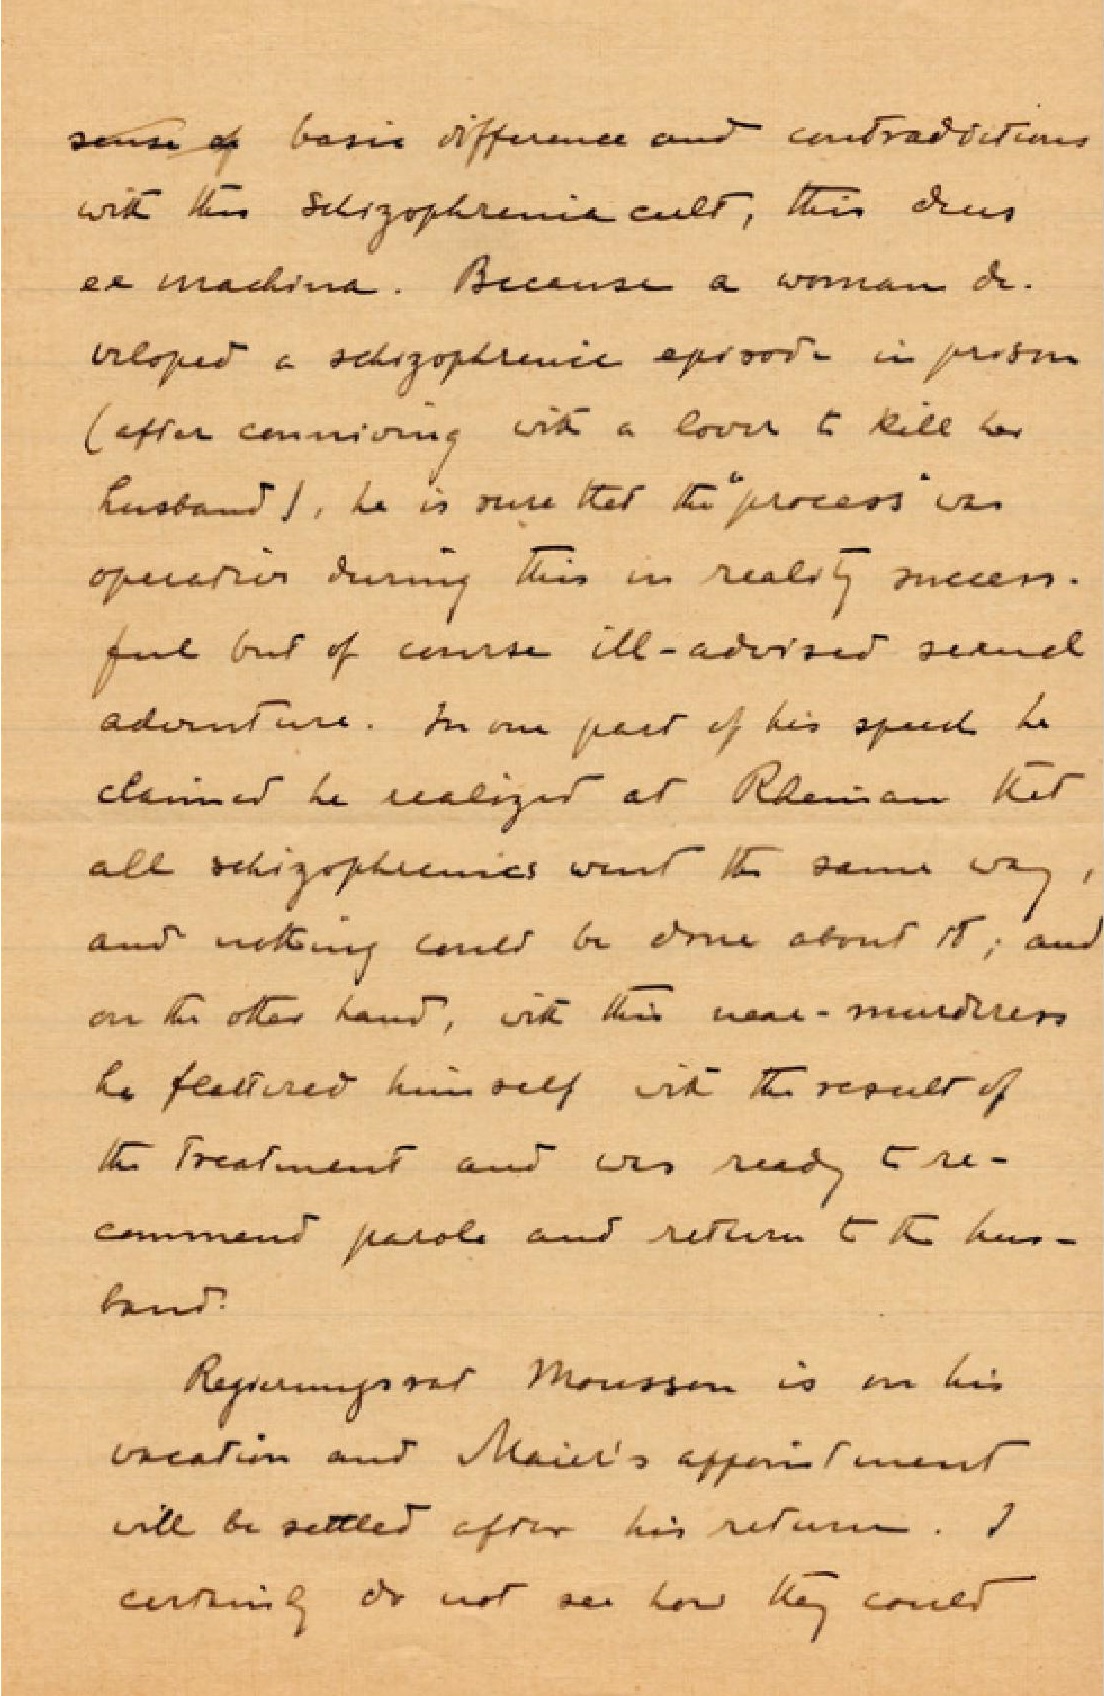 sense of basic difference and contradictions
with this schizophrenia cult, this deus
ex machina. Because a woman de-
veloped a schizophrenic episode in prison
(after conniving with a lover to kill her
husband), he is sure that the "process" was
operative during this in reality success-
ful but of course ill-advised sexual
adventure. In one part of his speech he
claimed he realized at Rheinau that
all schizophrenics went the same way,
and nothing could be done about it; and
on the other hand, with this near-murderess
he flattered himself with the result of
the treatment and was ready to re-
commend parole and return to the hus-
band.
Regierungsrat Mousson is on his
vacation and Maier's appointment
will be settled after his return. I
certainly do not see how they could